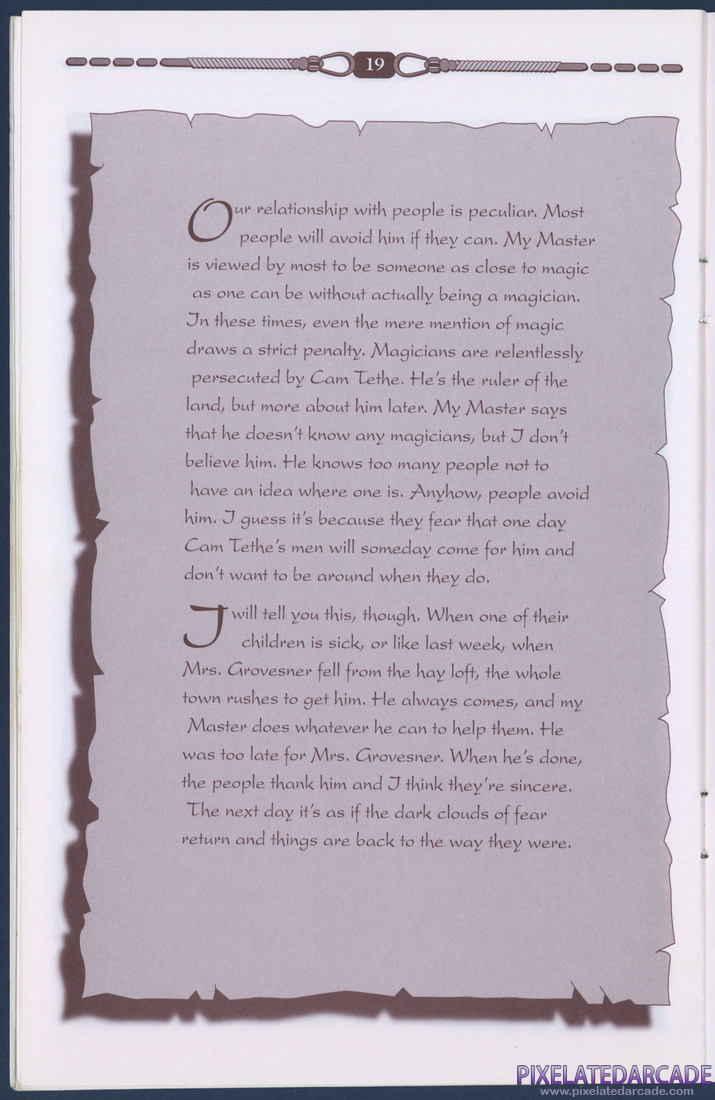 19
Our relationship with people is peculiar. Most
people will avoid him if they can. My Master
is viewed by most to be someone as close to magic
as one can be without actually being a magician.
In these times, even the mere mention of magic
draws a strict penalty. Magicians are relentlessly
persecuted by Cam Tethe. He's the ruler of the
land, but more about him later. My Master says
that he doesn't know any magicians, but I don't
believe him. He knows too many people not to
have an idea where one is. Anyhow, people avoid
him. I guess it's because they fear that one day
Cam Tethe's men will someday come for him and
don't want to be around when they do.
I will tell you this, though. When one of their
children is sick, or like last week, when
Mrs. Grovesner fell from the hay loft, the whole
town rushes to get him. He always comes, and my
Master does whatever he can to help them. He
was too late for Mrs. Grovesner. When he's done,
the people thank him and I think they're sincere.
The next day it's as if the dark clouds of fear
return and things are back to the way they were.
PIXELATEDARCADE
www.pixelatedarcade.com